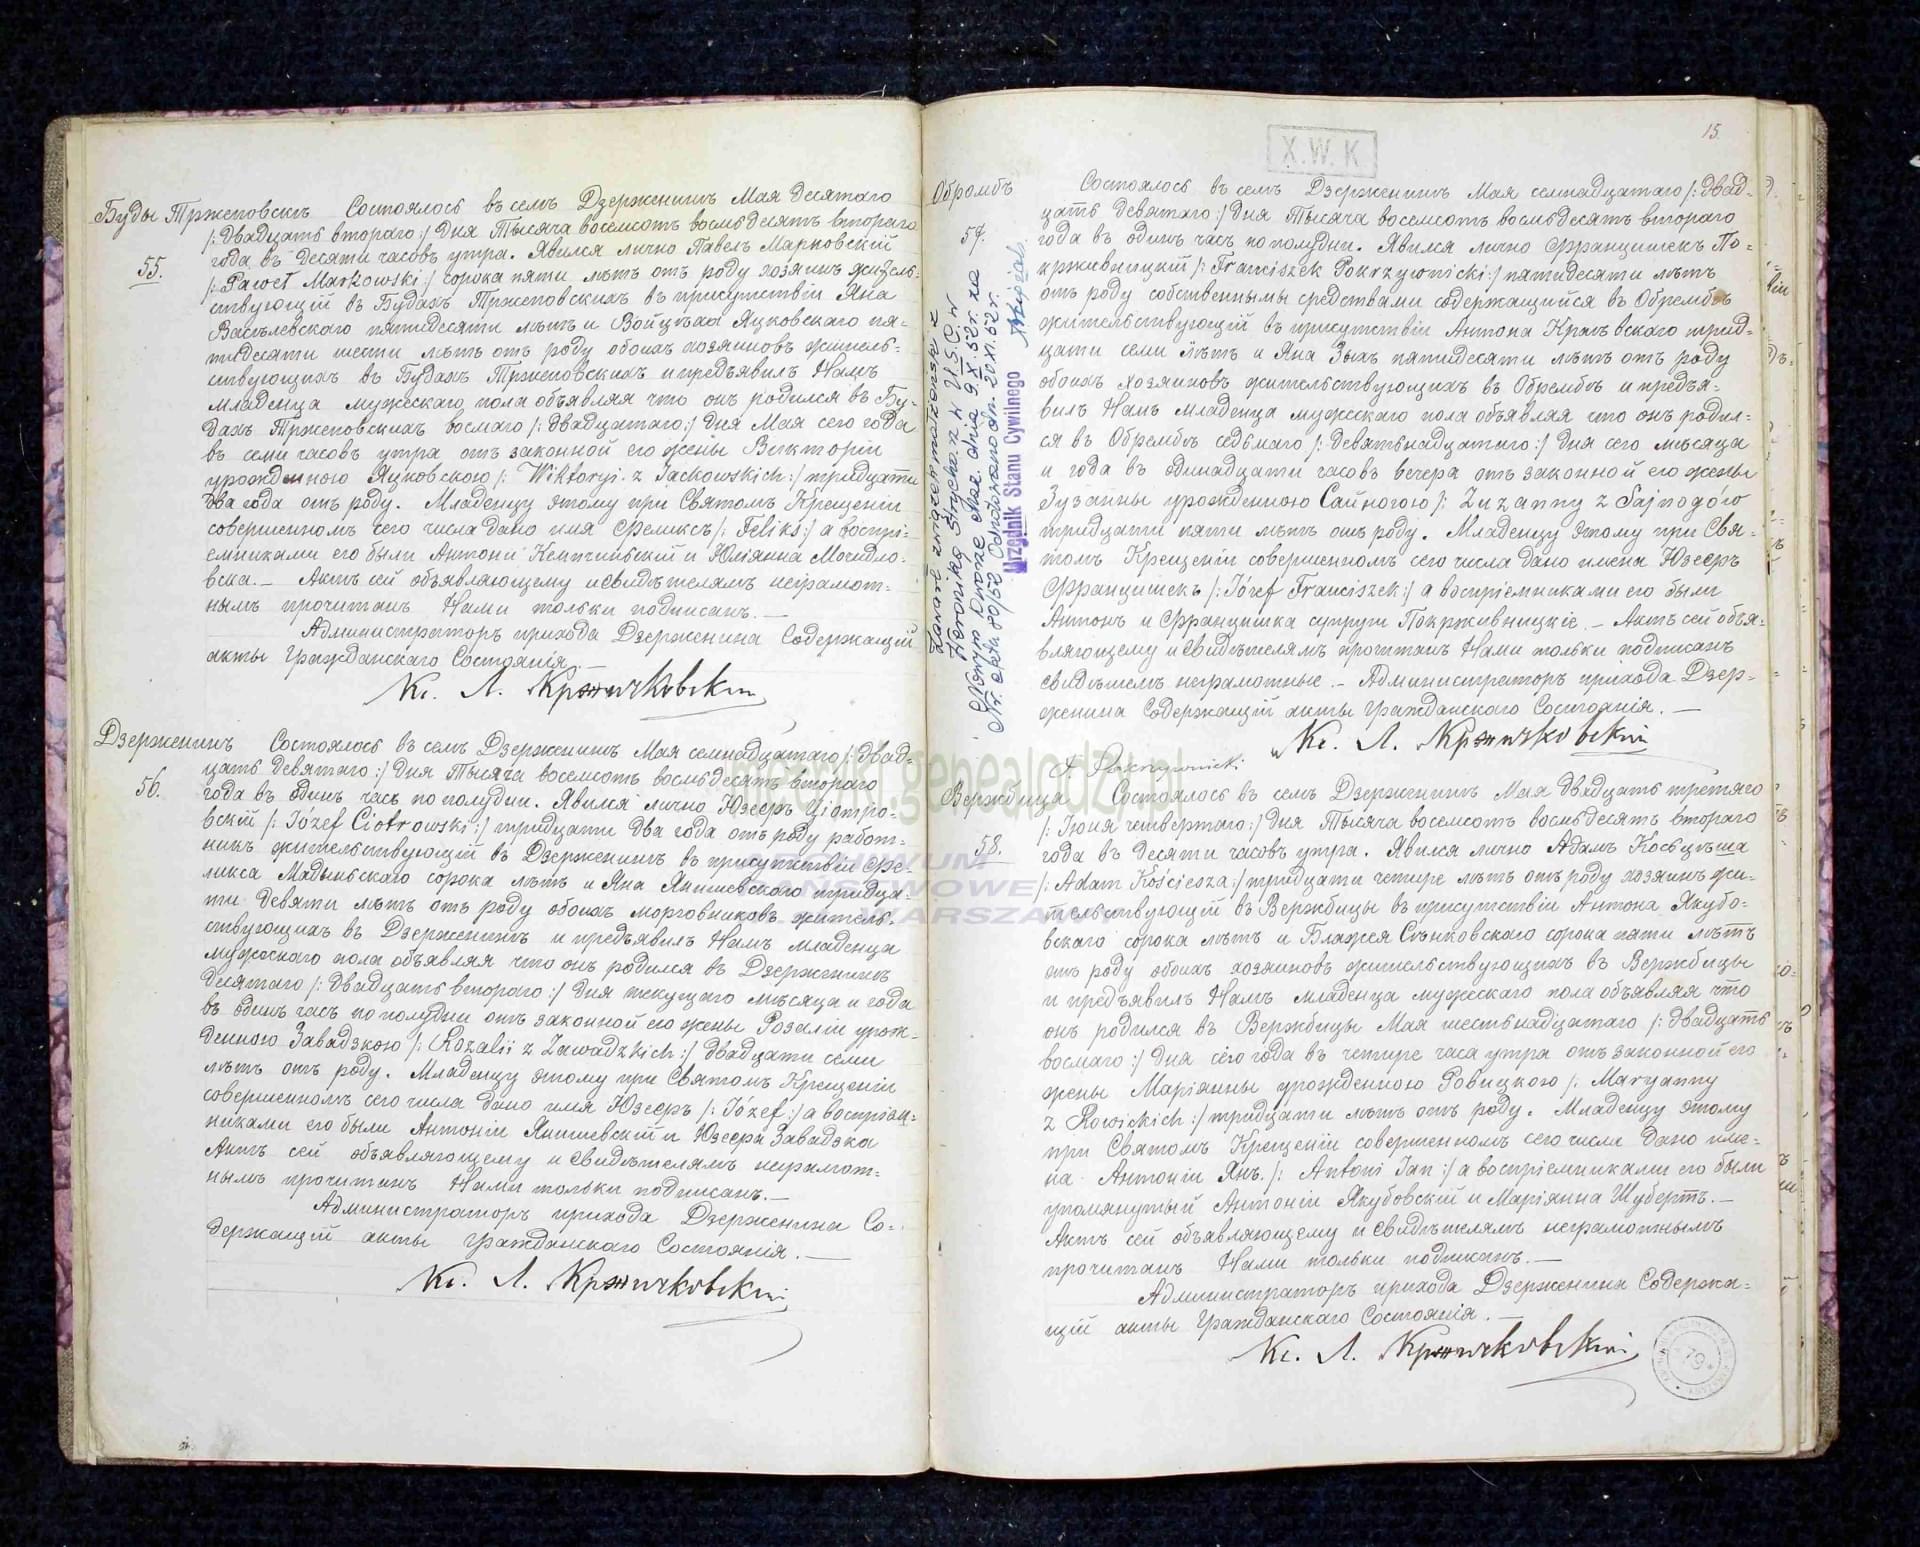 Буды Тржеповскъ
55.
Состоялось въ селѣ Дзерженинѣ Мая десятаго
/: двадцать втораго :/ дня Тысяча восемсотъ восмьдесятъ втораго
года въ десяти часовъ утра. Явился лично Павелъ Марковскій
/: Paweł Markowski :/ сорока пяти лѣтъ отъ роду хозяинъ житель-
ствующій въ Будахъ Тржеповскихъ въ присутствіи Яна
Василевскаго пятидесяти лѣтъ и Войцѣха Яцковскаго пя-
тидесяти шести лѣтъ отъ роду обоихъ хозяиновъ житель-
ствующихъ въ Будахъ Тржеповскихъ и предъявилъ Намъ
младенца мужескаго пола объявляя что онъ родился въ Бу-
дахъ Тржеповскихъ восмаго /: двадцатаго :/ дня Мая сего года
въ семи часовъ утра отъ законной его жены Викторіи
урожденною Яцковскою /: Wiktoryi z Jackowskich :/ тридцати
два года отъ роду. Младенцу этому при Святомъ Крещеніи
совершенномъ сего числа дано имя Феликсъ /: Feliks :/ а воспрі-
емниками его были Антони Кемпчинскій и Юліанна Мочидло-
вска. — Актъ сей объявляющему и свидѣтелямъ неграмот-
нымъ прочитанъ Нами тольки подписанъ. —
Администраторъ прихода Дзерженина Содержащій
акты Гражданскаго Состоянія. —
Кс. Л. Кржичковскій
Дзерженинъ
56.
Состоялось въ селѣ Дзерженинѣ Мая семнадцатаго /: двад-
цать девятаго :/ дня Тысяча восемсотъ восмьдесятъ втораго
года въ одинъ часъ по полудни. Явился лично Юзефъ Ціотро-
вскій /: Józef Ciotrowski :/ тридцати два года отъ роду работ-
никъ жительствующій въ Дзерженинѣ въ присутствіи Фе-
ликса Мадыньскаго сорока лѣтъ и Яна Янишевскаго тридца-
ти девяти лѣтъ отъ роду обоихъ морговниковъ житель-
ствующихъ въ Дзерженинѣ и предъявилъ Намъ младенца
мужескаго пола объявляя что онъ родился въ Дзерженинѣ
десятаго /: двадцать втораго :/ дня текущаго мѣсяца и года
въ одинъ часъ по полудни отъ законной его жены Розаліи урож-
денною Завадзкою /: Rozalii z Zawadzkich :/ двадцати семи
лѣтъ отъ роду. Младенцу этому при Святомъ Крещеніи
совершенномъ сего числа дано имя Юзефъ /: Józef :/ а воспріем-
никами его были Антоніи Янишевскій и Юзефа Завадзка
Актъ сей объявляющему и свидѣтелямъ неграмот-
нымъ прочитанъ Нами тольки подписанъ. —
Администраторъ прихода Дзерженина Со-
держащій акты Гражданскаго Состоянія. —
Кс. Л. Кржичковскій
15.
X. W. K.
Обромбъ
57.
Zawarł związek małżeński z
Weroniką
w U.S.C. w
Nowym Dworze Maz. dnia 9.X.52 r. za
Nr. aktu 80/52 Odnotowano dn. 20.XI.52 r.
Urzędnik Stanu Cywilnego
Состоялось въ селѣ Дзерженинѣ Мая семнадцатаго /: двад-
цать девятаго :/ дня Тысяча восемсотъ восмьдесятъ втораго
года въ одинъ часъ по полудни. Явился лично Францишекъ По-
крживницкій /: Franciszek Pokrzywnicki :/ пятидесяти лѣтъ
отъ роду собственнымы средствами содержащийся въ Обрембѣ
жительствующій въ присутствіи Антона Краевскаго трид-
цати семи лѣтъ и Яна Зыхъ пятидесяти лѣтъ отъ роду
обоихъ хозяиновъ жительствующихъ въ Обрембѣ и предъя-
вилъ Намъ младенца мужескаго пола объявляя что онъ родил-
ся въ Обрембѣ седьмаго /: девятьнадцатаго :/ дня сего мѣсяца
и года въ одинадцати часовъ вечера отъ законной его жены
Зузанны урожденною Сайногою /: Zuzanny z Sajnogów
тридцати пяти лѣтъ отъ роду. Младенцу этому при Свя-
томъ Крещеніи совершенномъ сего числа дано имена Юзефъ
Францишекъ /: Józef Franciszek :/ а воспріемниками его были
Антонъ и Францишка супруги Покрживницкіе. — Актъ сей объя-
вляющему и свидѣтелямъ прочтанъ Нами тольки подписанъ
свидѣтелѣ неграмотные. — Администраторъ прихода Дзер-
женина Содержащій акты Гражданскаго Состоянія. —
Кс. Л. Кржичковскій
F. Pokrzywnicki
Вержбица
58.
Состоялось въ селѣ Дзерженинѣ Мая двадцать третяго
/: Іюня четвертаго :/ дня Тысяча восемсотъ восмьдесятъ втораго
года въ десяти часовъ утра. Явился лично Адамъ Косьцѣша
/: Adam Kościesza :/ тридцати четире лѣтъ отъ роду хозяинъ жи-
тельствующій въ Вержбицы въ присутствіи Антона Якубо-
вскаго сорока лѣтъ и Блажея Сѣнковскаго сорока пяти лѣтъ
отъ роду обоихъ хозяиновъ жительствующихъ въ Вержбицы
и предъявилъ Намъ младенца мужескаго пола объявляя что
онъ родился въ Вержбицы Мая шестьнадцатаго /: двадцать
восмаго :/ дня сего года въ четире часа утра отъ законной его
жены Маріанны урожденною Ровицкою /: Maryanny
z Rowickich :/ тридцати лѣтъ отъ роду. Младенцу этому
при Святомъ Крещеніи совершенномъ сего числа дано име-
на Антоніи Янъ /: Antoni Jan :/ а воспріемниками его были
упомянутый Антоніи Якубовскій и Маріанна Шубертъ. —
Актъ сей объявляющему и свидѣтелямъ неграмотнымъ
прочитанъ Нами тольки подписанъ. —
Администраторъ прихода Дзерженина Содержа-
щій акты Гражданскаго Состоянія. —
Кс. Л. Кржичковскій
79
genealodzy.pl
ARCHIWUM
PAŃSTWOWE
WARSZAWA